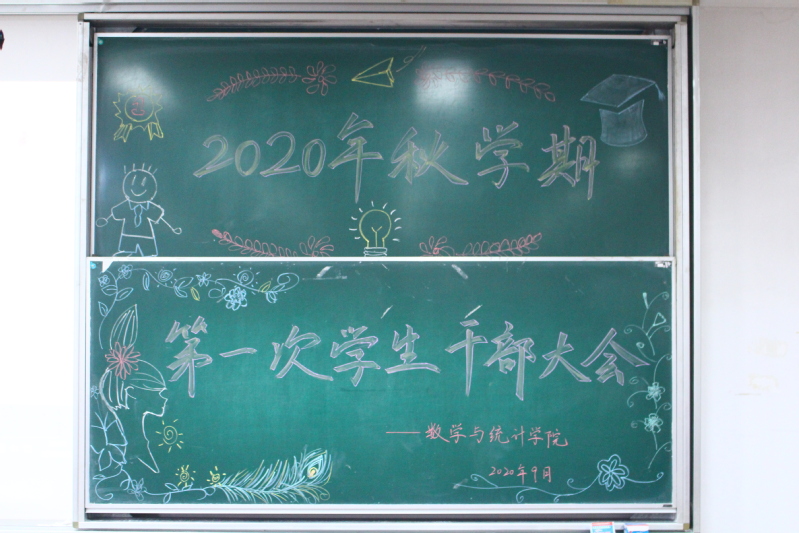 2020年秋学期
第一次学生干部大会
——数学与统计学院
2020年9月